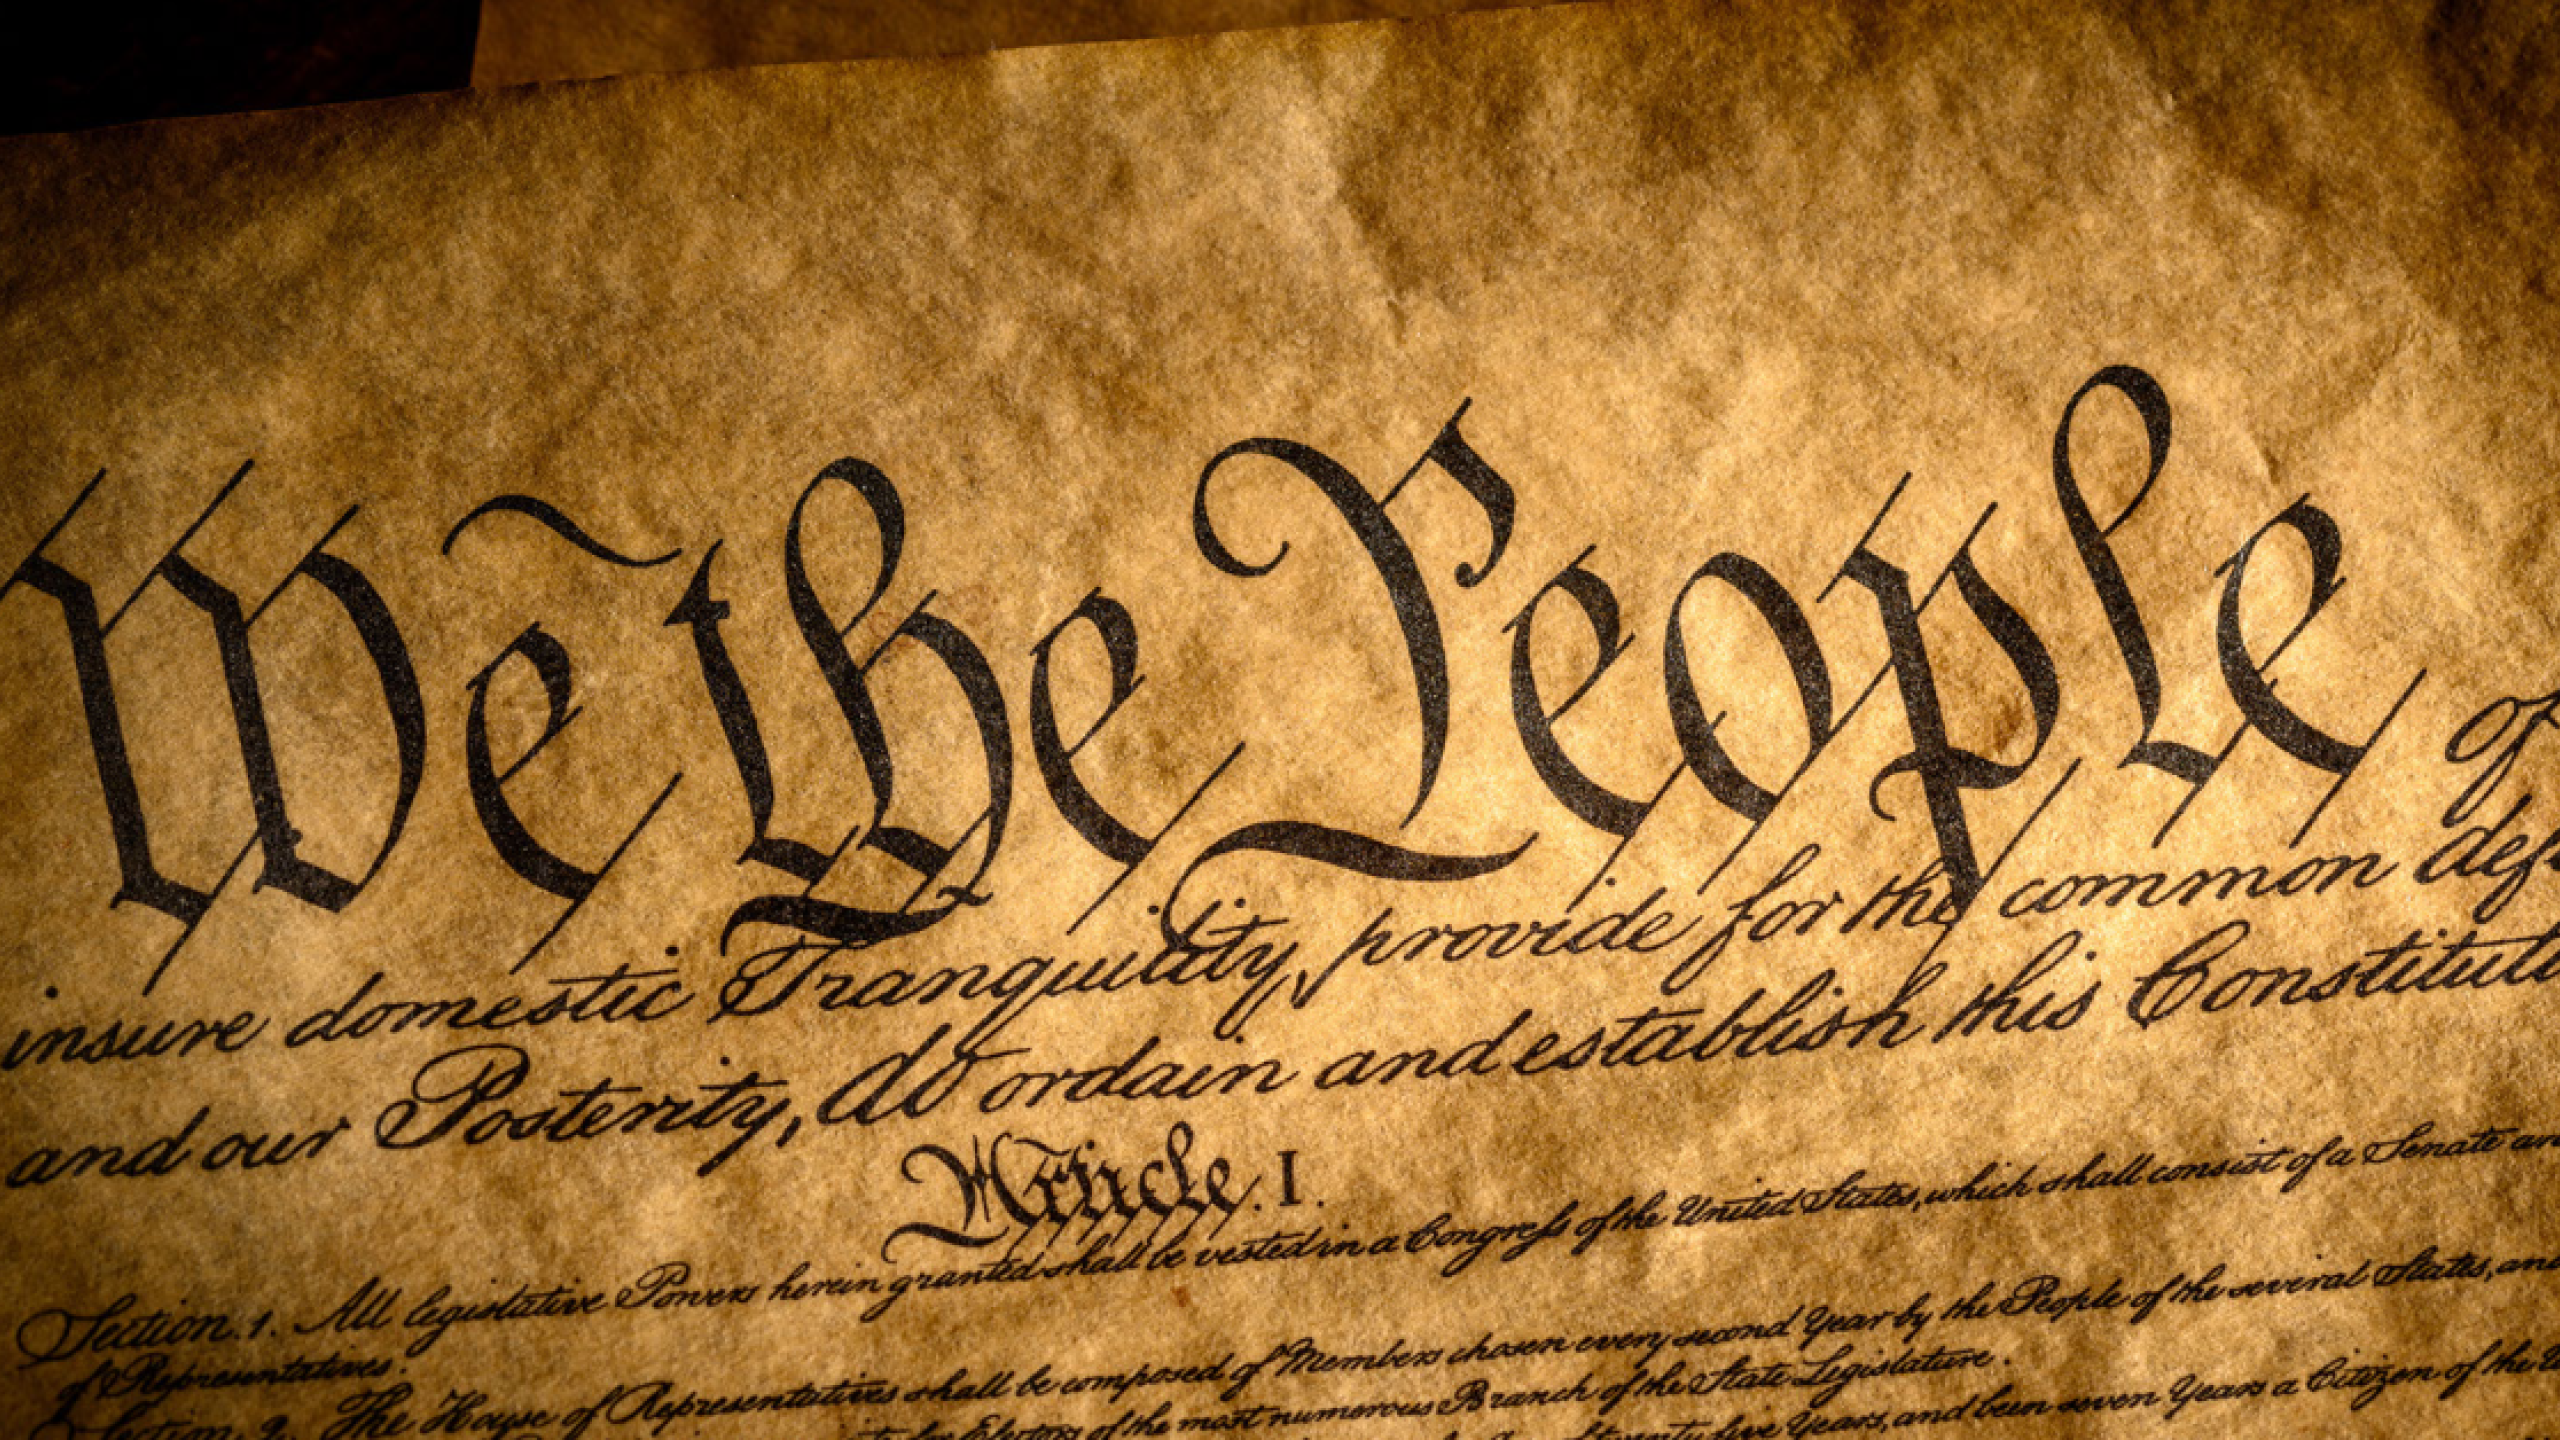 We the People of
insure domestic Tranquility, provide for the common def
and our Posterity, do ordain and establish this Constituti
Article. I.
Section. 1. All legislative Powers herein granted shall be vested in a Congress of the United States, which shall consist of a Senate an
of Representatives.
Section. 2. The House of Representatives shall be composed of Members chosen every second Year by the People of the several States, and
Electors of the most numerous Branch of the State Legislature.
twenty five Years, and been seven Years a Citizen of the